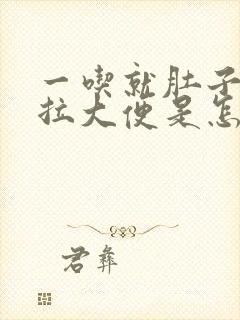 一喫就肚子
拉大便是怎
君彝